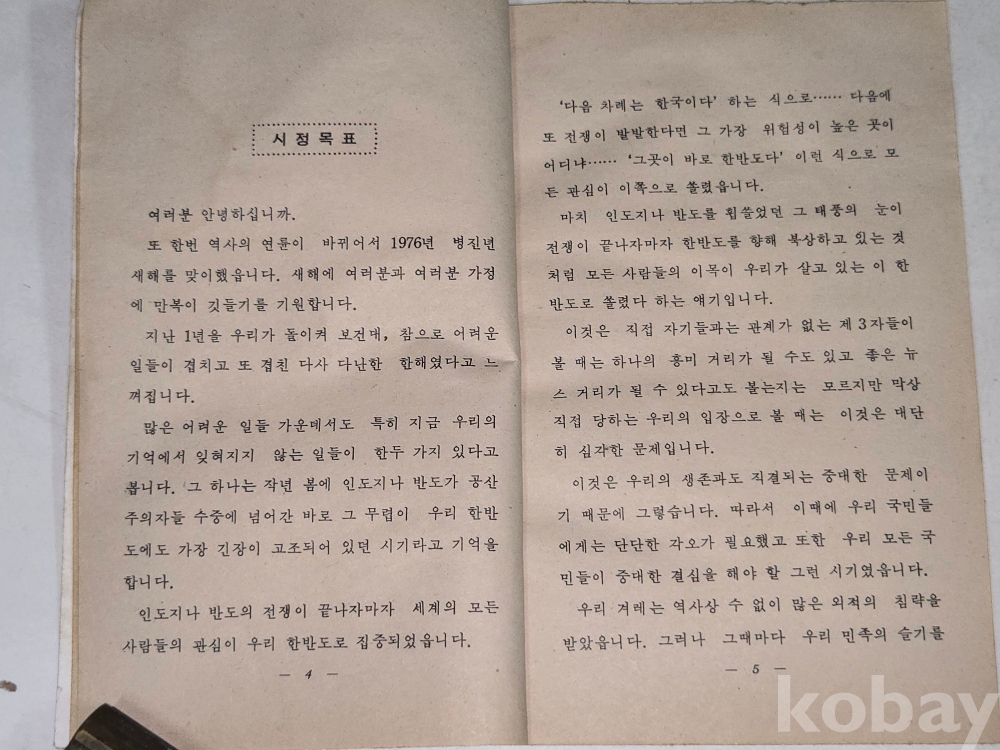 시정목표
여러분 안녕하십니까.
또 한번 역사의 연륜이 바뀌어서 1976년 병진년
새해를 맞이했읍니다. 새해에 여러분과 여러분 가정
에 만복이 깃들기를 기원합니다.
지난 1년을 우리가 돌이켜 보건대, 참으로 어려운
일들이 겹치고 또 겹친 다사 다난한 한해였다고 느
껴집니다.
많은 어려운 일들 가운데서도 특히 지금 우리의
기억에서 잊혀지지 않는 일들이 한두 가지 있다고
봅니다. 그 하나는 작년 봄에 인도지나 반도가 공산
주의자들 수중에 넘어간 바로 그 무렵이 우리 한반
도에도 가장 긴장이 고조되어 있던 시기라고 기억을
합니다.
인도지나 반도의 전쟁이 끝나자마자 세계의 모든
사람들의 관심이 우리 한반도로 집중되었읍니다.
— 4 —
‘다음 차례는 한국이다’ 하는 식으로…… 다음에
또 전쟁이 발발한다면 그 가장 위험성이 높은 곳이
어디냐…… ‘그곳이 바로 한반도다’ 이런 식으로 모
든 관심이 이쪽으로 쏠렸읍니다.
마치 인도지나 반도를 휩쓸었던 그 태풍의 눈이
전쟁이 끝나자마자 한반도를 향해 북상하고 있는 것
처럼 모든 사람들의 이목이 우리가 살고 있는 이 한
반도로 쏠렸다 하는 얘기입니다.
이것은 직접 자기들과는 관계가 없는 제 3 자들이
볼 때는 하나의 흥미 거리가 될 수도 있고 좋은 뉴
스 거리가 될 수 있다고도 볼는지는 모르지만 막상
직접 당하는 우리의 입장으로 볼 때는 이것은 대단
히 심각한 문제입니다.
이것은 우리의 생존과도 직결되는 중대한 문제이
기 때문에 그렇습니다. 따라서 이때에 우리 국민들
에게는 단단한 각오가 필요했고 또한 우리 모든 국
민들이 중대한 결심을 해야 할 그런 시기였읍니다.
우리 겨레는 역사상 수 없이 많은 외적의 침략을
받았읍니다. 그러나 그때마다 우리 민족의 슬기를
— 5 —
kobay